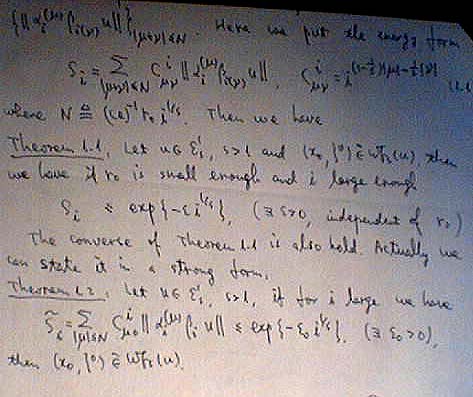 {‖α_i^{(μ)} β_{i(ν)} u‖}_{|μ+ν|≤N}. Here we put the energy form
S_i = Σ_{|μ+ν|≤N} C^i_{μν} ‖α_i^{(μ)} β_{i(ν)} u‖, C^i_{μν} = i^{(s-½)|μ|-½|ν|}
where N ≜ (ce)^{-1} r_0 i^{1/s}. Then we have
Theorem 1.1. Let u∈ℰ'_s, s>1 and (x_0, ξ^0) ∉ WF_s(u), then
we have if r_0 is small enough and i large enough
S_i ≤ exp{-ε i^{1/s}}, (∃ ε>0, independent of r_0)
The converse of Theorem 1.1 is also hold. Actually we
can state it in a strong form.
Theorem 1.2. Let u∈ℰ'_s, s>1, if for i large we have
S̃_i = Σ_{|μ|≤N} C^i_{μ0} ‖α_i^{(μ)} β_i u‖ ≤ exp{-ε_0 i^{1/s}}, (∃ ε_0>0),
then (x_0, ξ^0) ∉ WF_s(u).